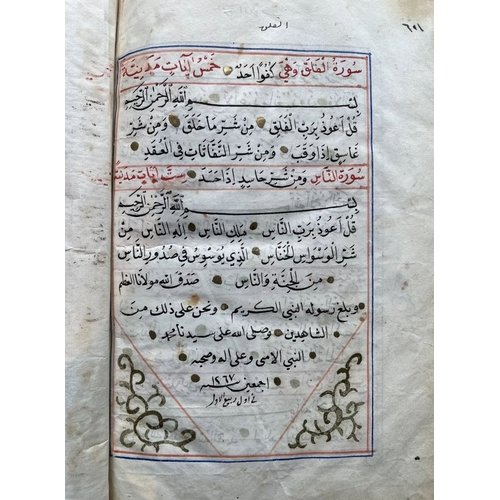 الفلق
سورة الفلق وهي كفوا احد خمس ايات مدنية
بسم الله الرحمن الرحيم
قل أعوذ برب الفلق من شر ما خلق ومن شر
غاسق إذا وقب ومن شر النفاثات في العقد
سورة الناس ومن شر حاسد إذا حسد ست ايات مدنية
بسم الله الرحمن الرحيم
قل أعوذ برب الناس ملك الناس إله الناس من
شر الوسواس الخناس الذي يوسوس في صدور الناس
من الجنة والناس صدق الله مولانا العظيم
وبلغ رسوله النبي الكريم ونحن على ذلك من
الشاهدين وصلى الله على سيدنا محمد
النبي الامى وعلى اله وصحبه
اجمعين سنه ١٢٦٧
في اول ربيع الاول